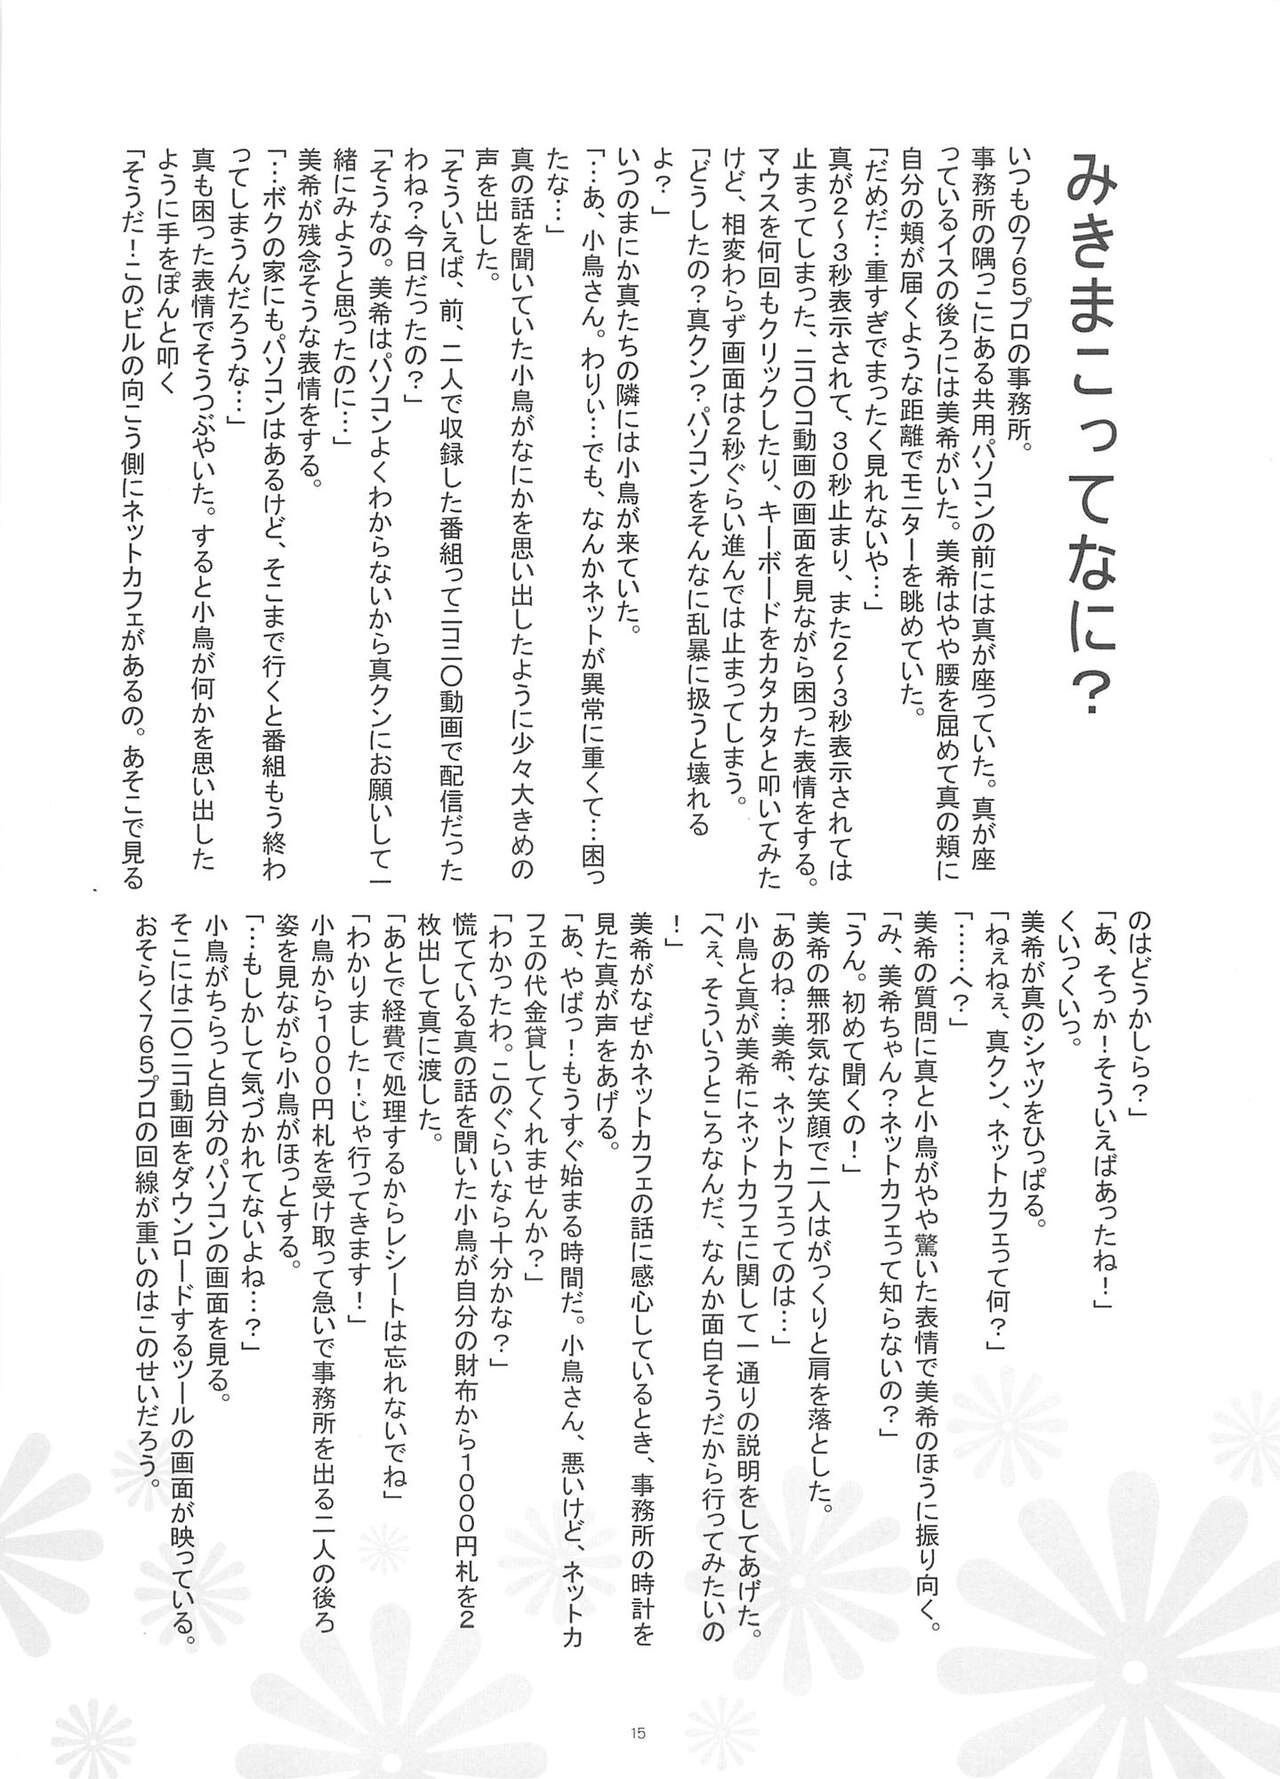 みきまこってなに？
いつもの７６５プロの事務所。
事務所の隅っこにある共用パソコンの前には真が座っていた。真が座
っているイスの後ろには美希がいた。美希はやや腰を屈めて真の頬に
自分の頬が届くような距離でモニターを眺めていた。
「だめだ…重すぎでまったく見れないや…」
真が２〜３秒表示されて、３０秒止まり、また２〜３秒表示されては
止まってしまった、ニコ〇コ動画の画面を見ながら困った表情をする。
マウスを何回もクリックしたり、キーボードをカタカタと叩いてみた
けど、相変わらず画面は２秒ぐらい進んでは止まってしまう。
「どうしたの？真クン？パソコンをそんなに乱暴に扱うと壊れる
よ？」
いつのまにか真たちの隣には小鳥が来ていた。
「…あ、小鳥さん。わりぃ…でも、なんかネットが異常に重くて…困っ
たな…」
真の話を聞いていた小鳥がなにかを思い出したように少々大きめの
声を出した。
「そういえば、前、二人で収録した番組ってニコニ〇動画で配信だった
わね？今日だったの？」
「そうなの。美希はパソコンよくわからないから真クンにお願いして一
緒にみようと思ったのに…」
美希が残念そうな表情をする。
「…ボクの家にもパソコンはあるけど、そこまで行くと番組もう終わ
ってしまうんだろうな…」
真も困った表情でそうつぶやいた。すると小鳥が何かを思い出した
ように手をぽんと叩く
「そうだ！このビルの向こう側にネットカフェがあるの。あそこで見る
のはどうかしら？」
「あ、そっか！そういえばあったね！」
くいっくいっ。
美希が真のシャツをひっぱる。
「ねぇねぇ、真クン、ネットカフェって何？」
「……へ？」
美希の質問に真と小鳥がやや驚いた表情で美希のほうに振り向く。
「み、美希ちゃん？ネットカフェって知らないの？」
「うん。初めて聞くの！」
美希の無邪気な笑顔で二人はがっくりと肩を落とした。
「あのね…美希、ネットカフェってのは…」
小鳥と真が美希にネットカフェに関して一通りの説明をしてあげた。
「へぇ、そういうところなんだ、なんか面白そうだから行ってみたいの
！」
美希がなぜかネットカフェの話に感心しているとき、事務所の時計を
見た真が声をあげる。
「あ、やばっ！もうすぐ始まる時間だ。小鳥さん、悪いけど、ネットカ
フェの代金貸してくれませんか？」
「わかったわ。このぐらいなら十分かな？」
慌てている真の話を聞いた小鳥が自分の財布から１０００円札を２
枚出して真に渡した。
「あとで経費で処理するからレシートは忘れないでね」
「わかりました！じゃ行ってきます！」
小鳥から１０００円札を受け取って急いで事務所を出る二人の後ろ
姿を見ながら小鳥がほっとする。
「…もしかして気づかれてないよね…？」
小鳥がちらっと自分のパソコンの画面を見る。
そこにはニ〇ニコ動画をダウンロードするツールの画面が映っている。
おそらく７６５プロの回線が重いのはこのせいだろう。
15